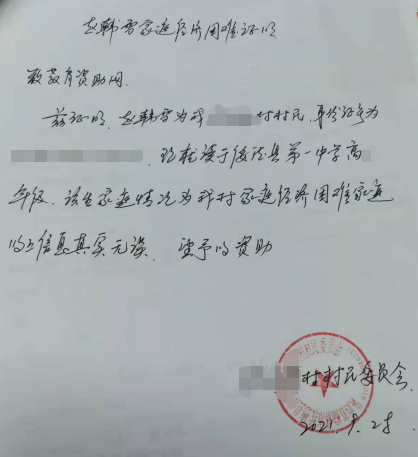 赵韩雪家庭经济困难证明
致教育资助网
兹证明，赵韩雪为我 村村民，身份证号为
现就读于 县第一中学高
年级，该生家庭情况为我村家庭经济困难家庭
以上信息真实无误，望予以资助
村村民委员会
2021.9.28